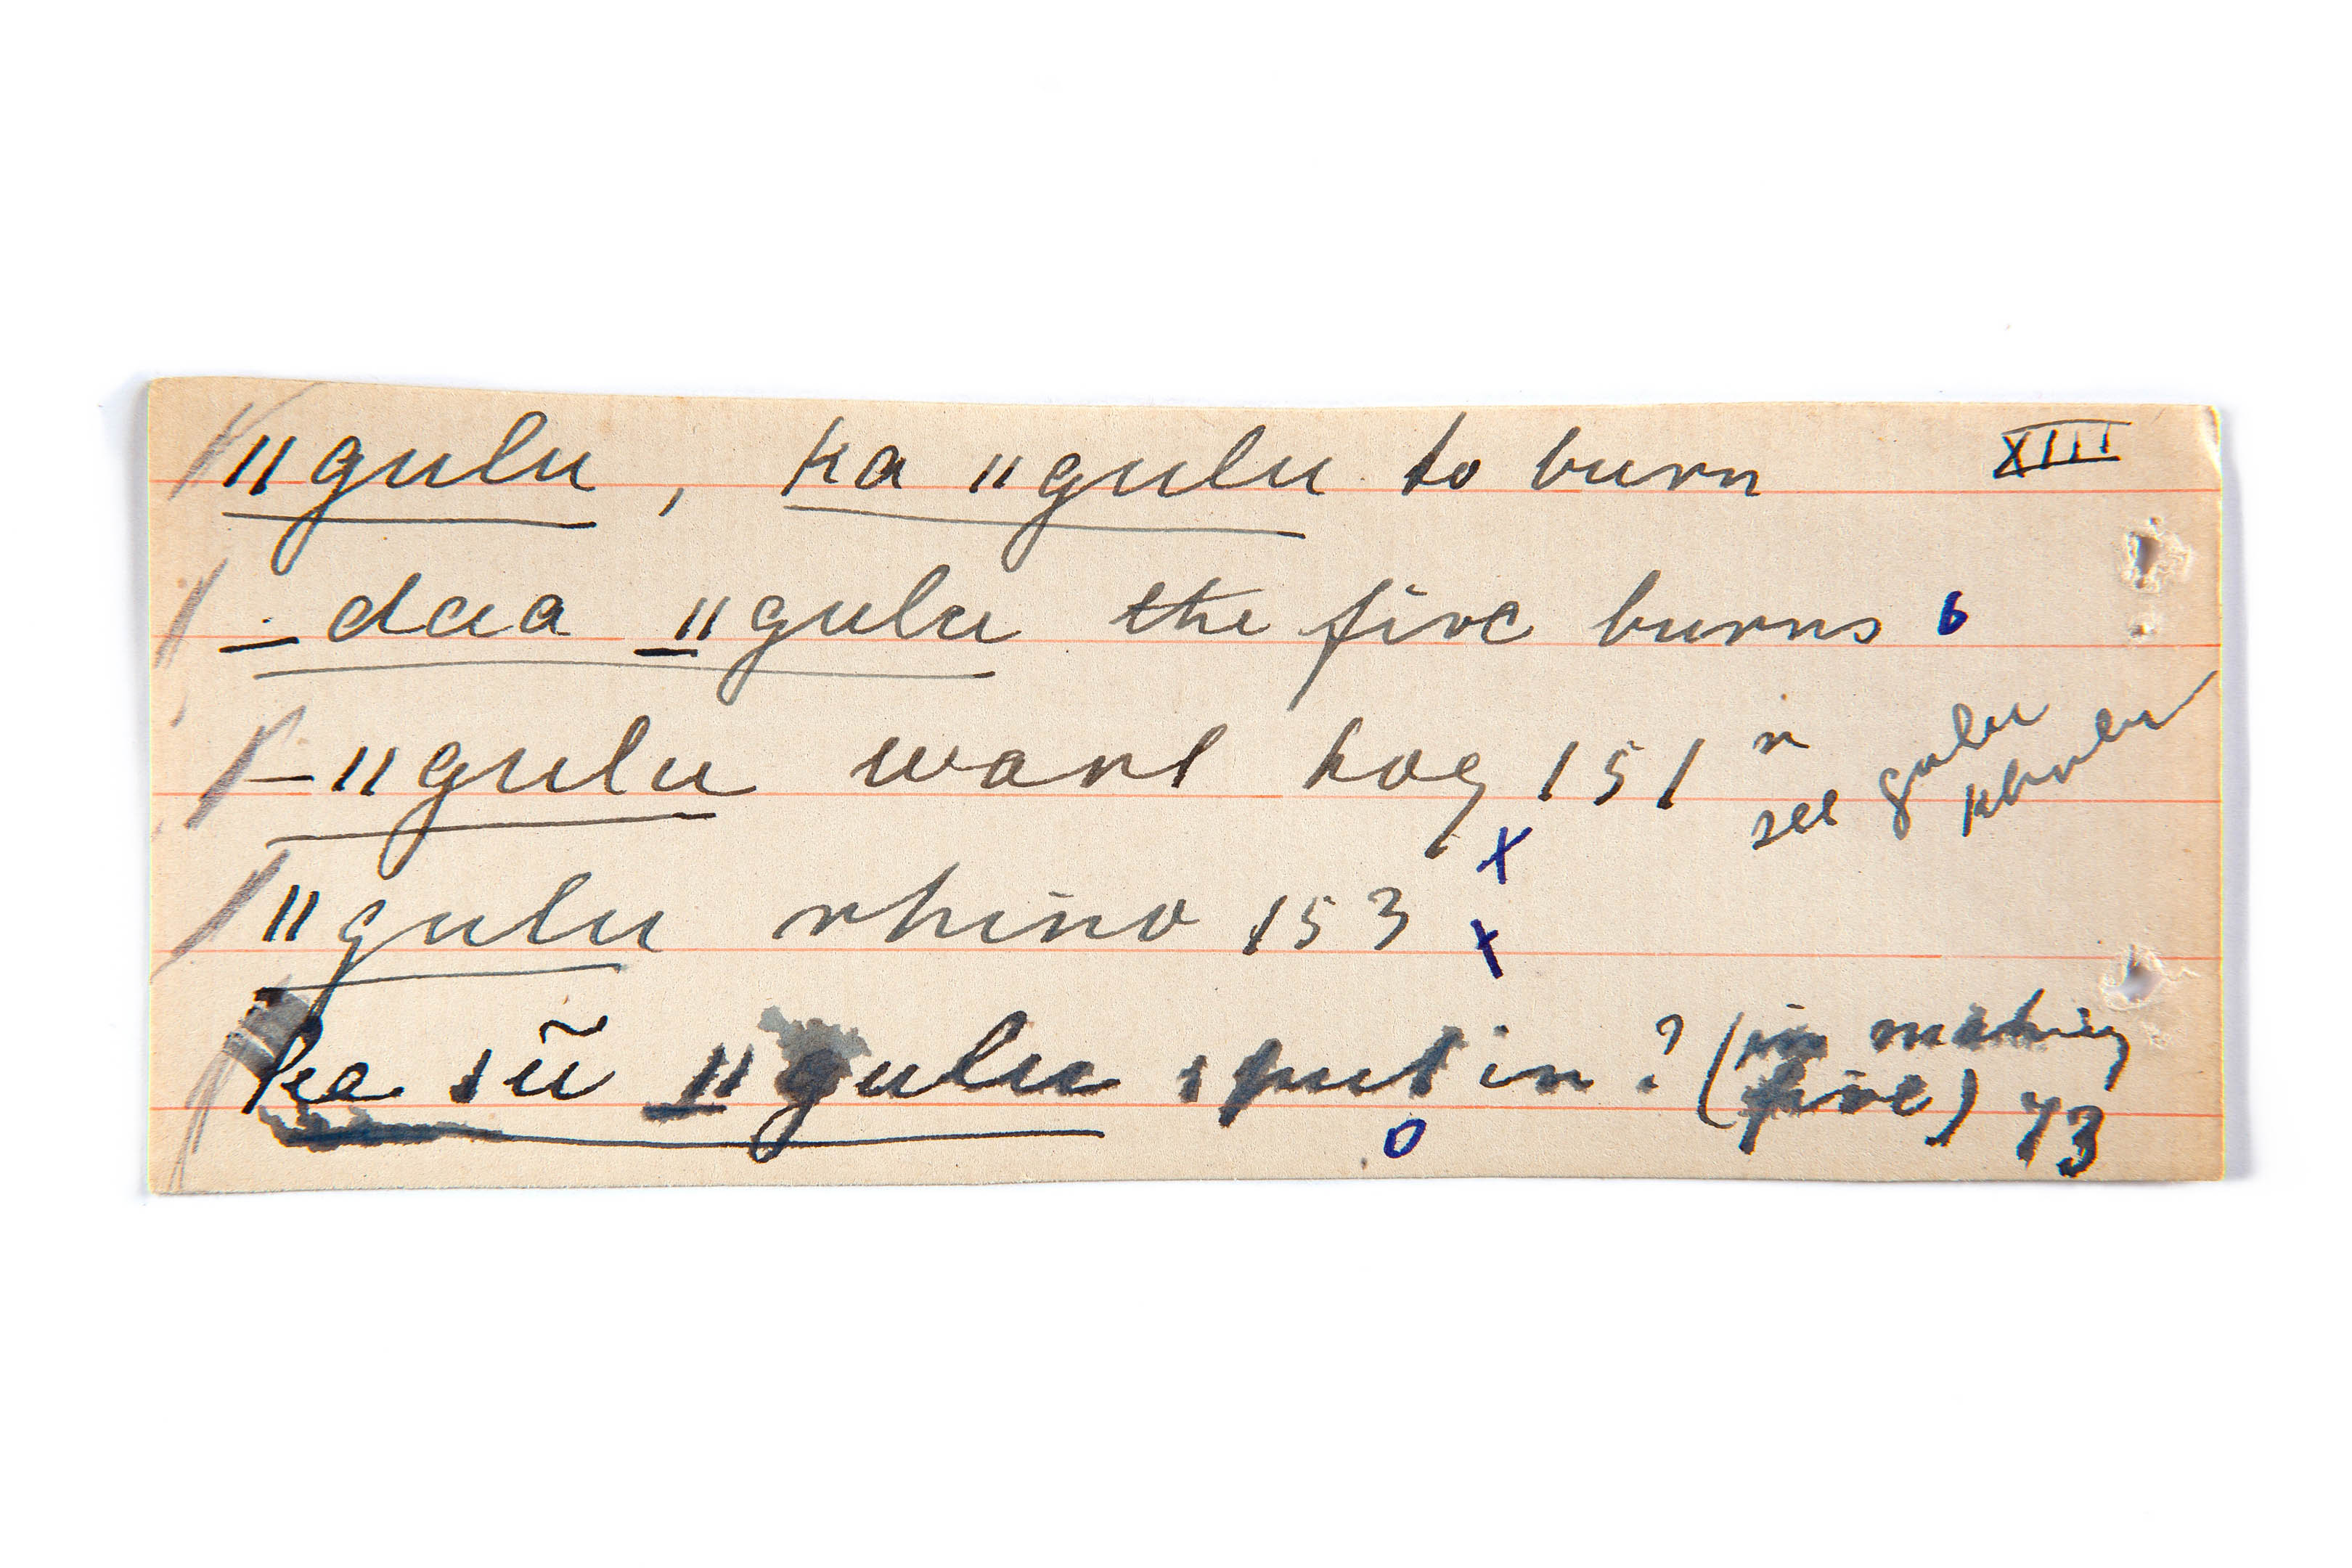 ǁgulu, ka ǁgulu to burn XIII
_daa _ǁgulu the fire burns 6
_ǁgulu wart hog 151 n see gulu
ǁgulu rhino 153 x x
ka sũ _ǁgulu put in? (in making fire) 73
0